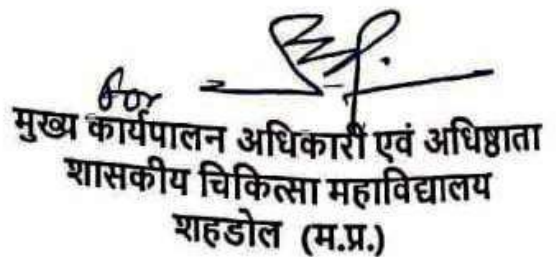 For
मुख्य कार्यपालन अधिकारी एवं अधिष्ठाता
शासकीय चिकित्सा महाविद्यालय
शहडोल (म.प्र.)